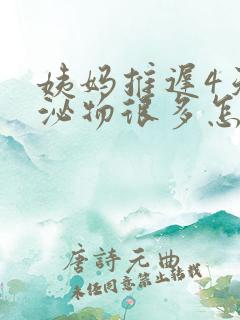 姨妈推遲4天
泌物很多怎
唐詩元曲
未经同意禁止转载